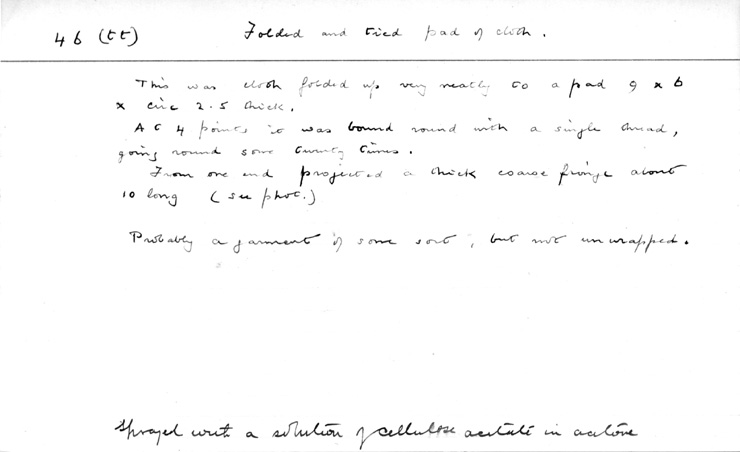 46 (tt) Folded and tied pad of cloth.
This was cloth folded up very neatly to a pad 9 x 6
x circ 2.5 thick.
At 4 points it was bound round with a single thread,
going round some twenty times.
From one end projected a thick coarse fringe about
10 long (see phot.)
Probably a garment of some sort, but not unwrapped.
Sprayed with a solution of cellulose acetate in acetone